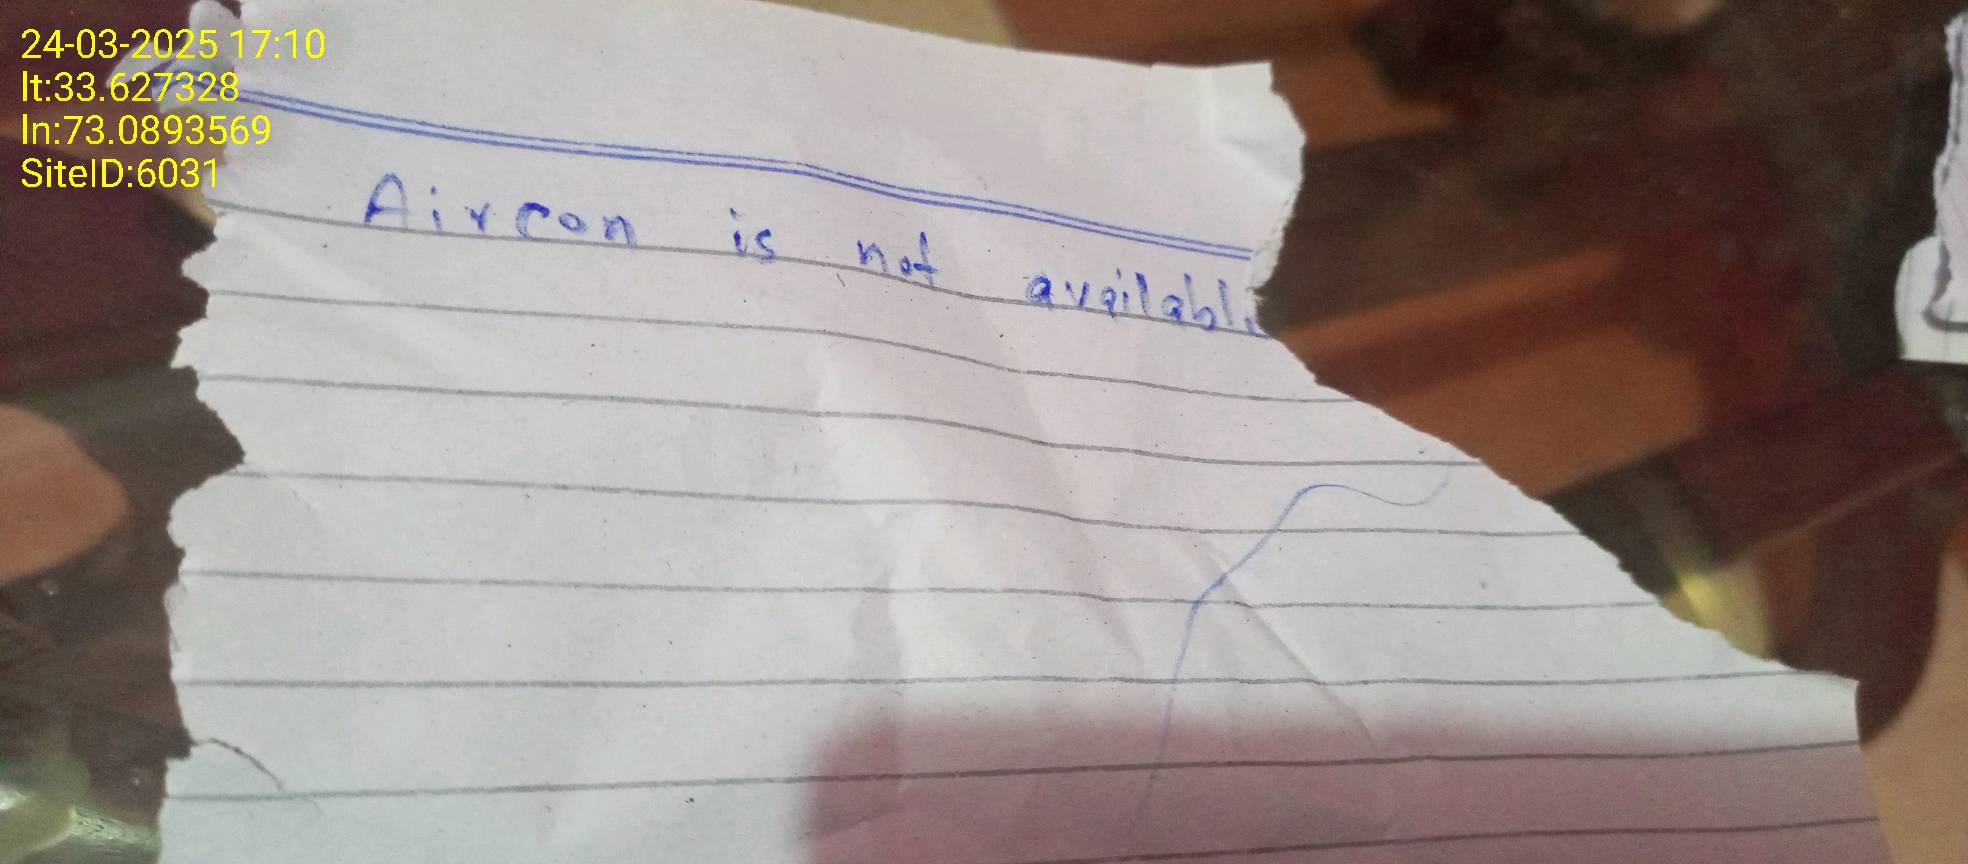 24-03-2025 17:10
lt:33.627328
ln:73.0893569
SiteID:6031
Aircon is not availabl